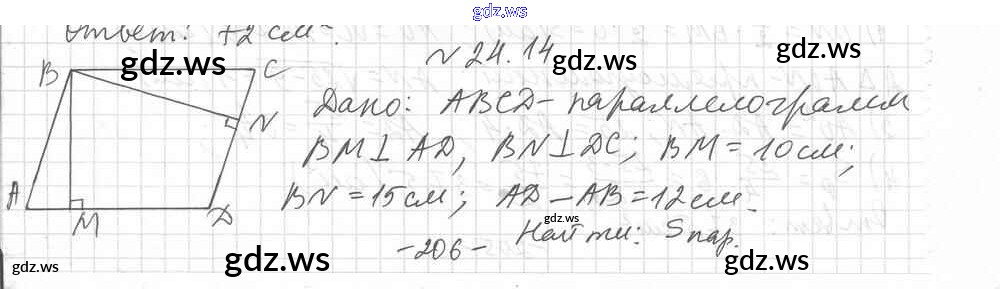 gdz.ws
Ответ: 72 см².
gdz.ws gdz.ws
N 24.14
B C
Дано: ABCD - параллелограмм
N
BM ⊥ AD, BN ⊥ DC; BM = 10 см;
A M D
BN = 15 см; AD - AB = 12 см.
gdz.ws
Найти: Sпар.
- 206 -
gdz.ws gdz.ws gdz.ws gdz.ws